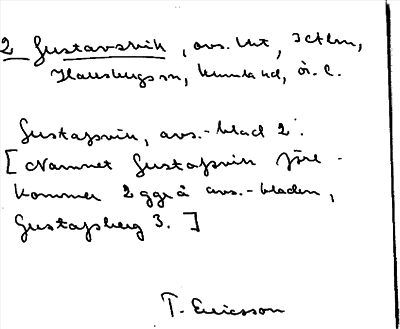 2 Gustavsvik, avs. lht, 3 tlm,
Hardemo sn, Kumla hd, ör. l.
Gustafsvik, avs.-blad 2.
[Namnet Gustafsvik före-
kommer 2 ggr å avs.-bladen,
Gustafsberg 3.]
T. Ericsson